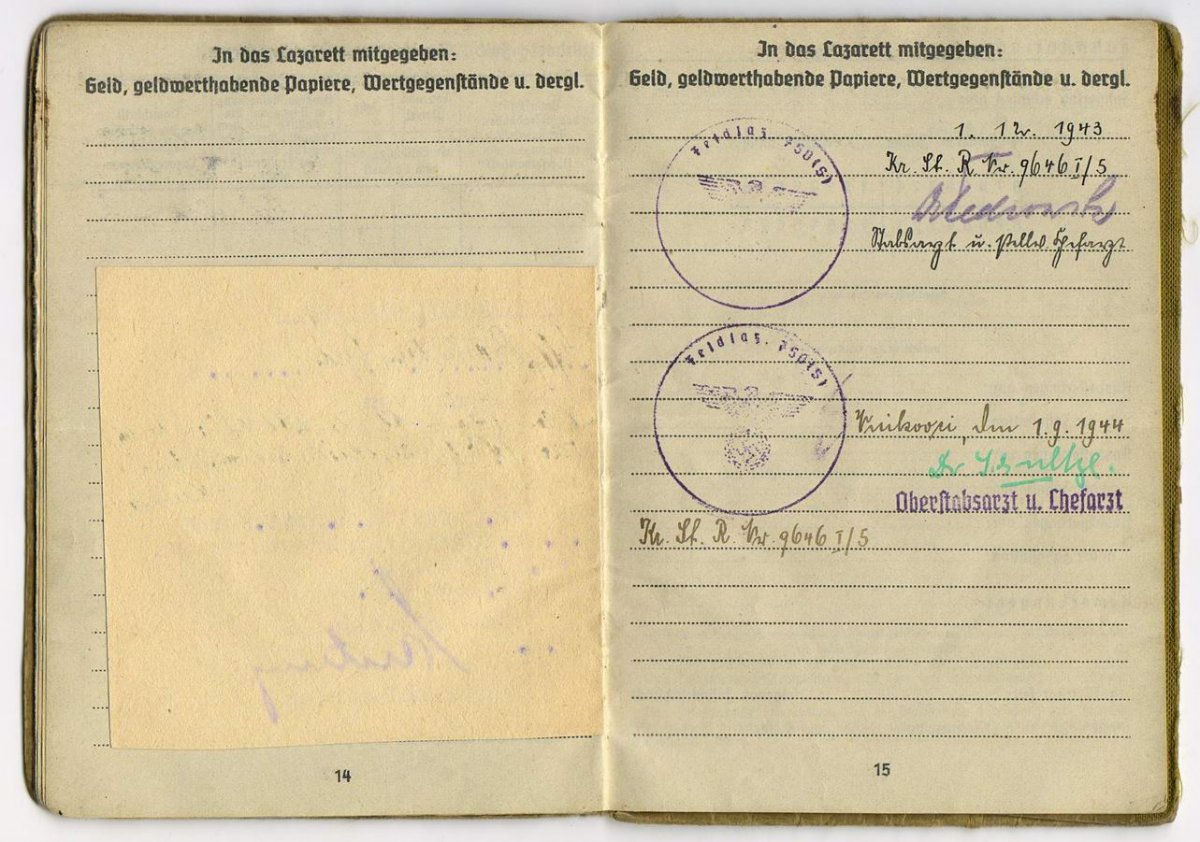 In das Lazarett mitgegeben:
Geld, geldwerthabende Papiere, Wertgegenstände u. dergl.
14
In das Lazarett mitgegeben:
Geld, geldwerthabende Papiere, Wertgegenstände u. dergl.
Feldlaz. 750(S)
1. 12. 1943
Kr. St. R. Nr. 9646 I/5
Stabsarzt u. stellv. Chefarzt
Feldlaz. 750(S)
den 1.9.1944
Dr
Oberstabsarzt u. Chefarzt
Kr. St. R. Nr. 9646 I/5
15